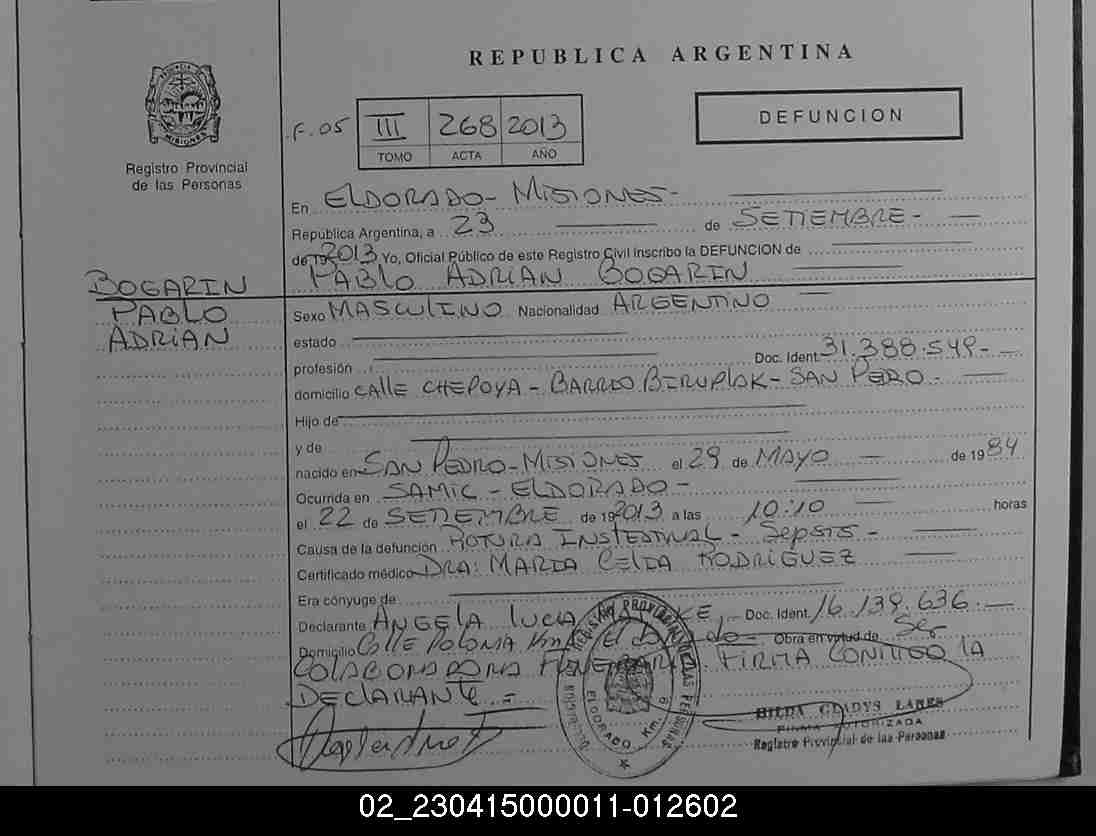 REPUBLICA ARGENTINA
DEFUNCION
F. 05 III 268 2013
TOMO ACTA AÑO
Registro Provincial
de las Personas
En ELDORADO - MISIONES -
República Argentina, a 23 de SETIEMBRE -
de 2013 Yo, Oficial Público de este Registro Civil inscribo la DEFUNCION de
PABLO ADRIAN BOGARIN
BOGARIN
PABLO
ADRIAN
Sexo MASCULINO Nacionalidad ARGENTINO
estado
profesión Doc. Ident. 31.388.549 -
domicilio CALLE CHEPOYA - BARRIO - SAN PEDRO -
Hijo de
y de
nacido en SAN PEDRO - MISIONES el 29 de MAYO de 1984
Ocurrida en SAMIC - ELDORADO -
el 22 de SETIEMBRE de 2013 a las 10:10 horas
Causa de la defunción ROTURA INSTESTINAL - Sepsis -
Certificado médico DRA: MARIA CELIA RODRIGUEZ
Era cónyuge de
Declarante ANGELA LUCIA Doc. Ident. 16.139.636 -
Domicilio Calle POLONIA Obra en virtud de Ser
COLABORADORA FIRMA CONMIGO LA
DECLARANTE =
REGISTRO PROVINCIAL DE LAS PERSONAS
ELDORADO Km. 9
HILDA GLADYS LARES
FIRMA AUTORIZADA
Registro Provincial de las Personas
02_230415000011-012602